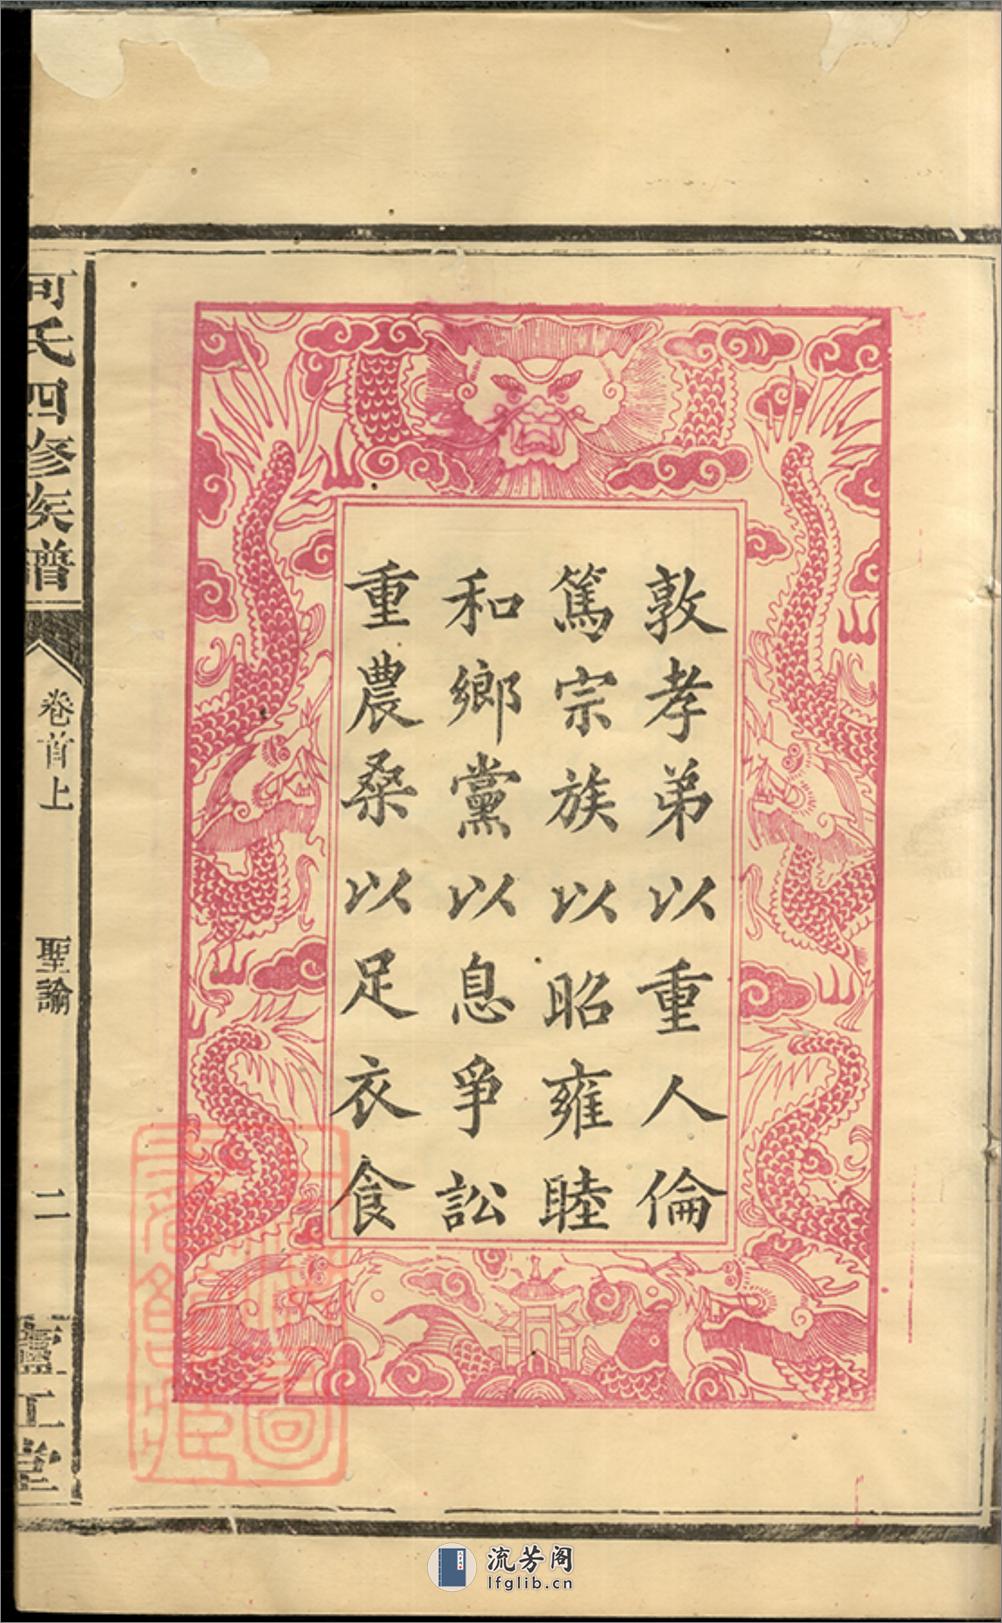 敦孝弟以重人倫
篤宗族以昭雍睦
和鄉黨以息爭訟
重農桑以足衣食
何氏四修族譜
卷首上
聖諭
二
廬江堂
流芳阁
lfglib.cn